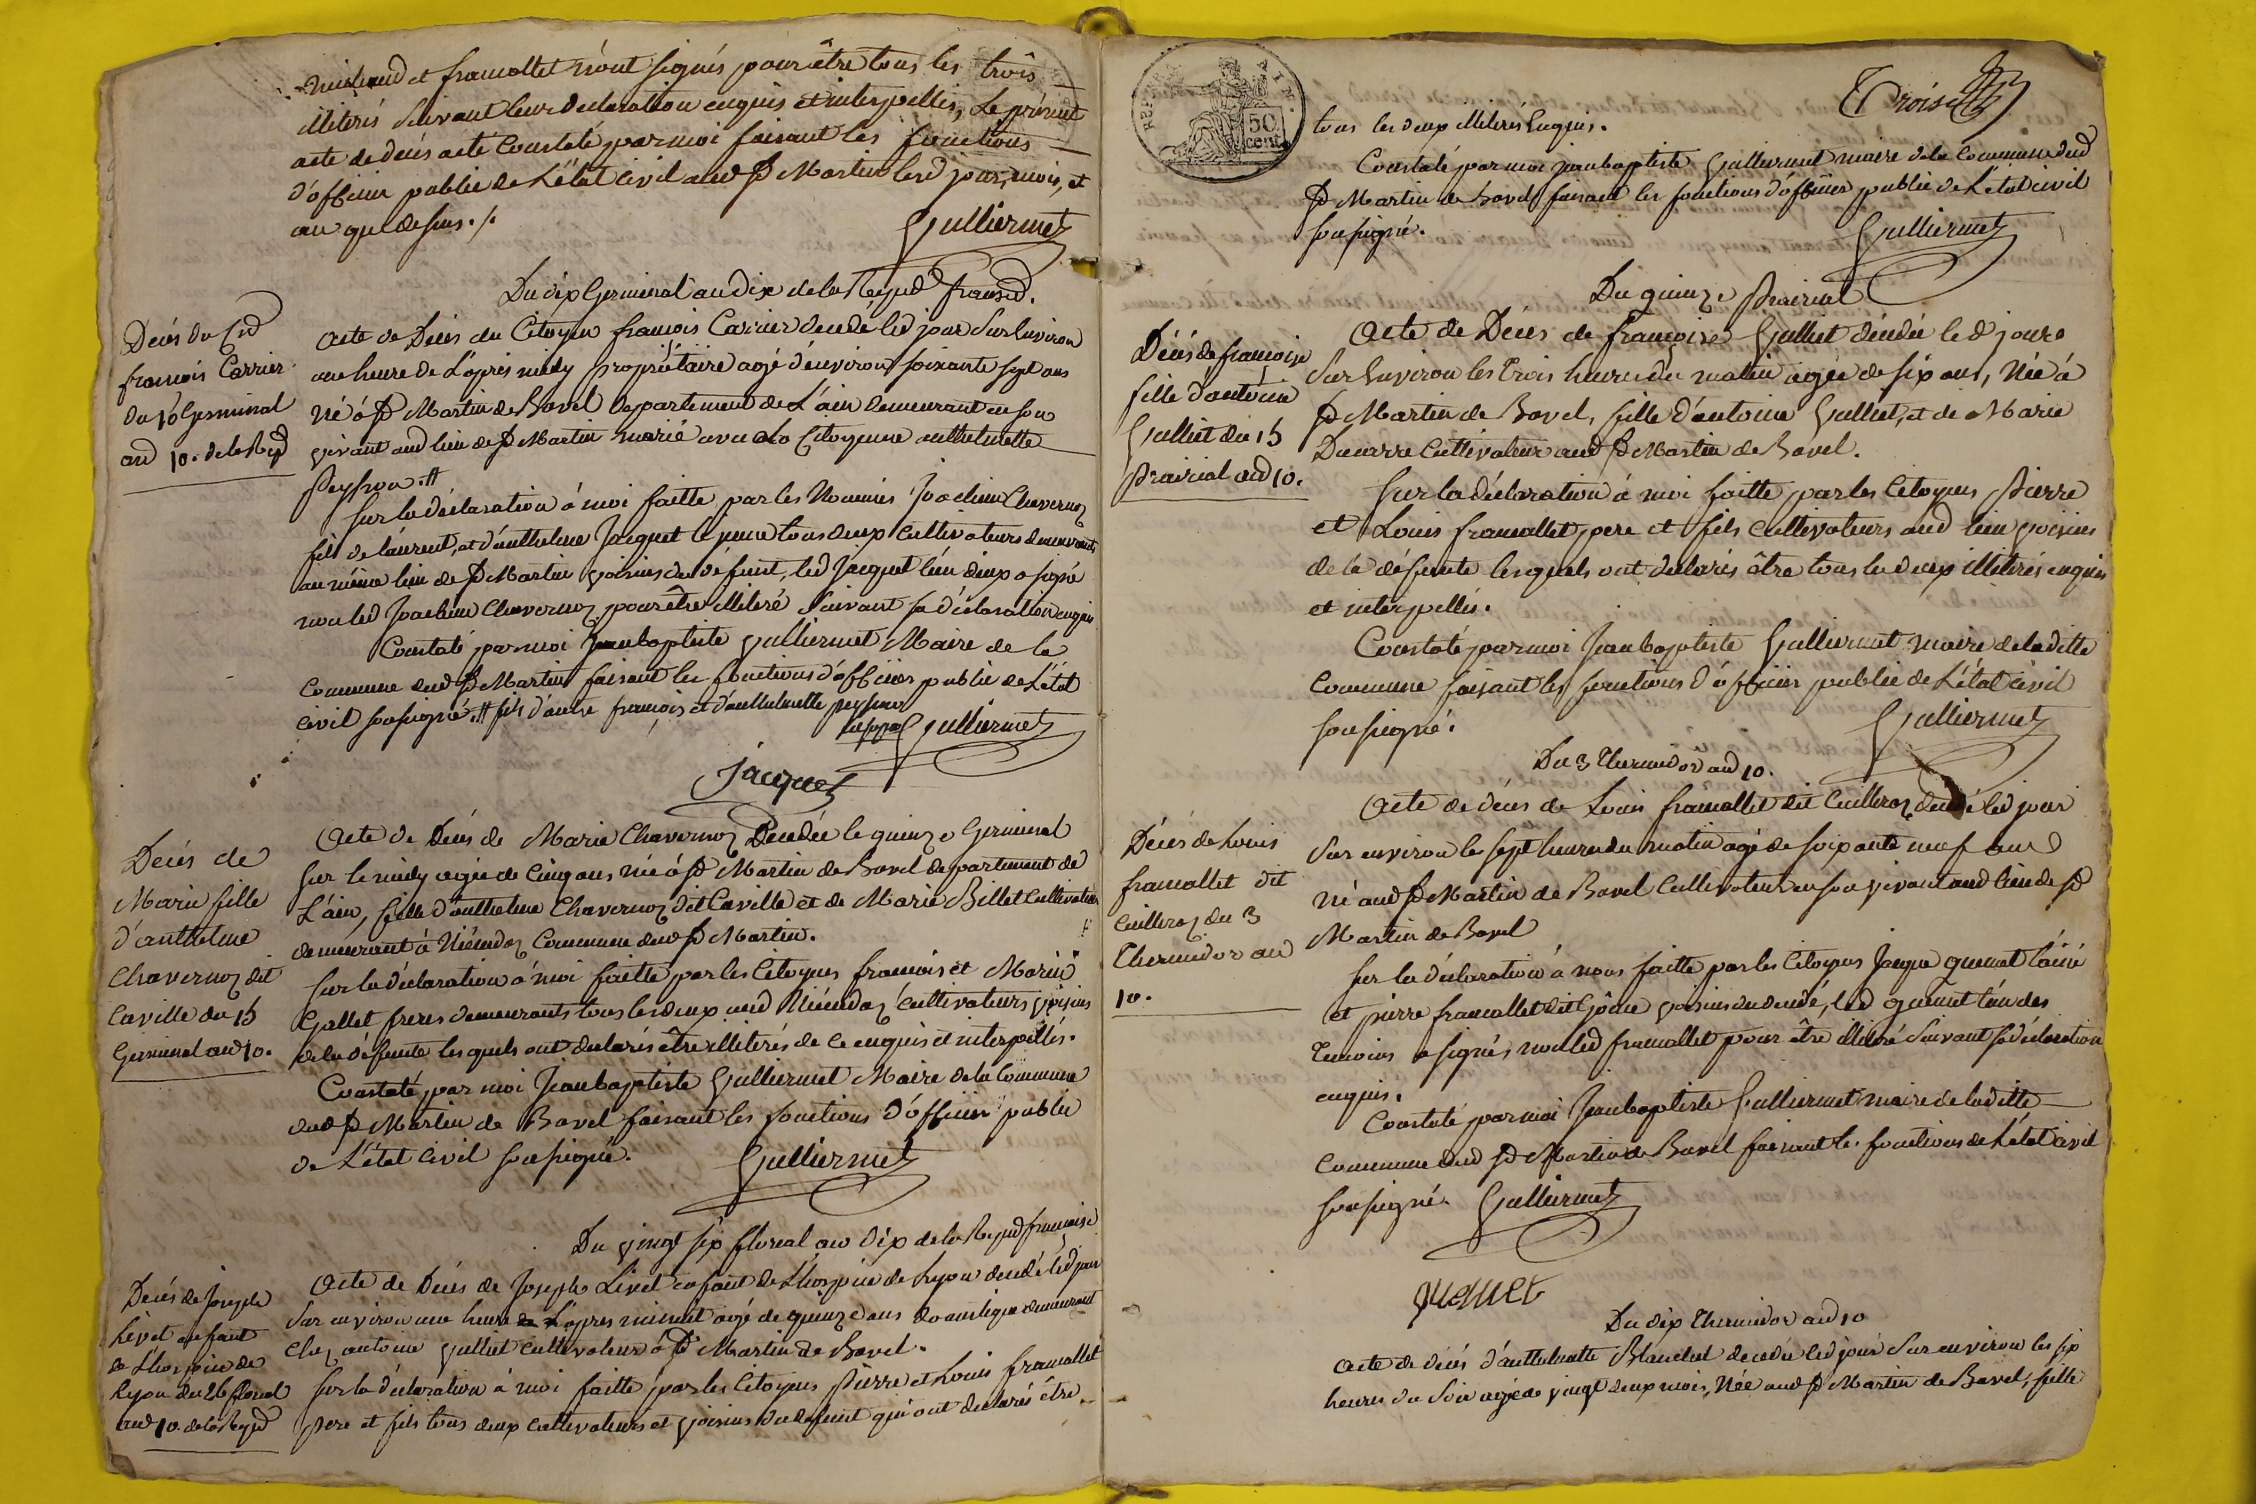 Mishaud et framollet n'ont signés pour être tous les trois
illiterés suivant leur declaration enquis et interpellés, Le présent
acte de déces acté Constaté par moi faisant les fonctions
d'officier public de L'état civil aud St Martin lesd jour, mois, et
an que dessus ./.
Gulliermet
Du dix Germinal an dix de la Repud francd.
Decés du Cid
francois Carrier
du 10 Germinal
and 10. de la Repd
Acte de Déces du Citoyen francois Carrier decedé led jour Sur Environ
une heure de L'après midy propriétaire agé d'environ soixante sept ans
né à St Martin de Bavel Departement de L'ain demeurant en son
vivant aud lieu de St Martin marié avec La Citoyenne anthelmette
Peysson .#
Sur la déclaration à moi faitte par les Nommés Joachim Chavernoz
fils de Laurent, et d'anthelme Jacquet le jeune tous deux Cultivateurs demeurants
au même lieu de St Martin voisins du défunt, led Jacquet l'un d'eux a signé
non led Joachim Chavernoz pour être illiteré Suivant sa déclaration enquis
Constaté par moi Jeanbaptiste Gulliermet Maire de la
Commune dud St Martin faisant les fonctions d'officier public de L'état
Civil soussigné .# fils d'autre francois et d'anthelmette peysson
Gulliermet
Jacquet
Decés de
Marie fille
d'anthelme
Chavernoz dit
Caville du 15
Germinal and 10.
Acte de Déces de Marie Chavernoz Decedée le quinze Germinal
Sur le midy agée de Cinq ans née à St Martin de Bavel departement de
L'ain, fille d'anthelme Chavernoz dit Caville et de Marie Billet Cultivateurs
demeurant à Niérudoz Commune dud St Martin.
Sur la déclaration à moi faitte par les Citoyens francois et Marin
Gallet freres demeurants tous les deux aud Niérudoz Cultivateurs voisins
de la défunte lesquels ont declarés être illiterés de ce enquis et interpellés.
Constaté par moi Jeanbaptiste Gulliermet Maire de la Commune
dud St Martin de Bavel faisant les fonctions d'officier public
de L'état Civil soussigné.
Gulliermet
Du vingt six floreal an dix de la Repud francaise
Decés de Joseph
Livet enfant
de L'hospice de
Lyon du 26 floreal
and 10. de la Repd
Acte de Déces de Joseph Livet enfant de L'hospice de Lyon decedé led jour
Sur environ une heure de L'apres minuit agé de quinze ans domestique demeurant
Chez antoine Gulliet Cultivateur à St Martin de Bavel.
Sur la déclaration à moi faitte par les Citoyens Pierre et Louis framollet
pere et fils tous deux cultivateurs et voisins du defunt qui ont declarés être
50
cent
Trois
tous les deux illiterés Enquis.
Constaté par moi Jeanbaptiste Gulliermet maire de la Commune dud
St Martin de Bavel faisant les fonctions d'officier public de L'état civil
soussigné.
Gulliermet
Du quinze Prairial
Décés de francoise
fille d'antoine
Gulliet du 15
Prairial and 10.
Acte de Déces de francoise Gulliet décedée led jour
Sur Environ les Trois heures du matin agée de six ans, Née à
St Martin de Bavel, fille d'antoine Gulliet, et de Marie
Ducurre Cultivateur aud St Martin de Bavel.
Sur la déclaration à moi faitte par les Citoyens Pierre
et Louis framollet pere et fils Cultivateurs aud lieu voisins
de la défunte lesquels ont declarés être tous les deux illiterés enquis
et interpellés.
Constaté par moi Jeanbaptiste Gulliermet maire de laditte
Commune faisant les fonctions d'officier public de L'état civil
soussigné.
Gulliermet
Du 3 Thermidor and 10.
Décés de Louis
framollet dit
Cuilleroz du 3
Thermidor an
10.
Acte de déces de Louis framollet dit Cuilleroz decedé led jour
Sur environ les sept heures du matin agé de soixante neuf ans
né aud St Martin de Bavel Cultivateur en son vivant aud lieu de St
Martin de Bavel
Sur la déclaration à nous faitte par les Citoyens Jaque quenet L'ainé
et pierre framollet dit voisins du decedé, led quenet l'un des
Temoins a signés, non led framollet pour être illiteré Suivant sa déclaration
enquis.
Constaté par moi Jeanbaptiste Gulliermet maire de laditte
Commune dud St Martin de Bavel faisant le fonctions de L'état civil
soussigné. Gulliermet
quenet
Du dix Thermidor and 10
Acte de décés d'anthelmette Blanchet decedée led jour Sur environ les six
heures du Soir agée de vingt deux mois, Née aud St Martin de Bavel, fille